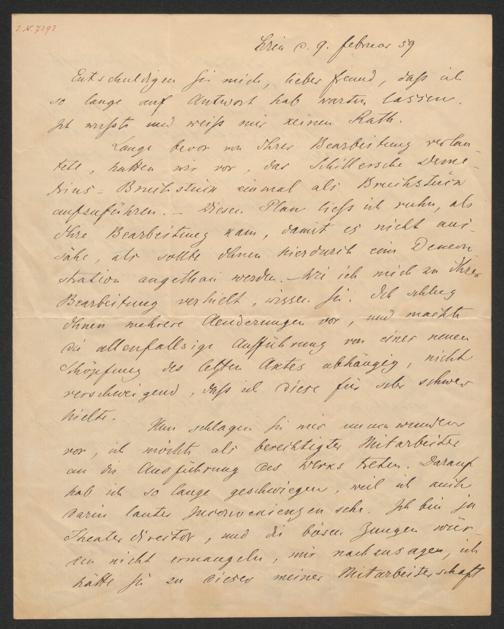 I.N. 7292
d. 9. Februar 59
Entschuldigen Sie mich, lieber Freund, daß ich
so lange auf Antwort hab warten lassen.
Ich wußte und weiß mir keinen Rath.
Lange bevor von Ihrer Bearbeitung verlau-
tete, hatten wir vor, das Schillersche Deme-
trius-Bruchstück einmal als Bruchstück
aufzuführen. – Diesen Plan ließ ich ruhn, als
Ihre Bearbeitung kam, damit es nicht aus-
sähe, als sollte Ihnen hierdurch eine Demon
stration angethan werden. – Wie ich mich zu Ihrer
Bearbeitung verhielt, wissen Sie. Ich schlug
Ihnen mehrere Aenderungen vor, und machte
die allenfallsige Aufführung von einer neuen
Schöpfung des letzten Actes abhängig, nicht
verschweigend, daß ich diese für sehr schwer
hielte.
Nun schlagen Sie mir unumwunden
vor, ich möchte als berechtigter Mitarbeiter
an die Ausführung des Werks treten. Darauf
hab ich so lange geschwiegen, weil ich auch
darin lauter Inconvenienzen sehe. Ich bin ja
Theaterdirector, und die bösen Zungen wür
den nicht ermangeln, mir nachzusagen, ich
hätte Sie zu dieser meiner Mitarbeiterschaft